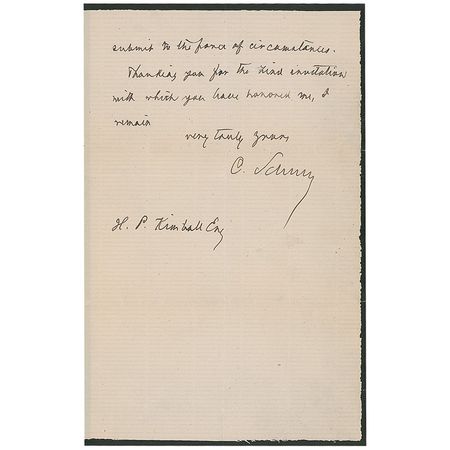 submit to the force of circumstances.
Thanking you for the kind invitation
with which you have honored me, I
remain
very truly yours
C. Schurz
H. P. Kimball Esq